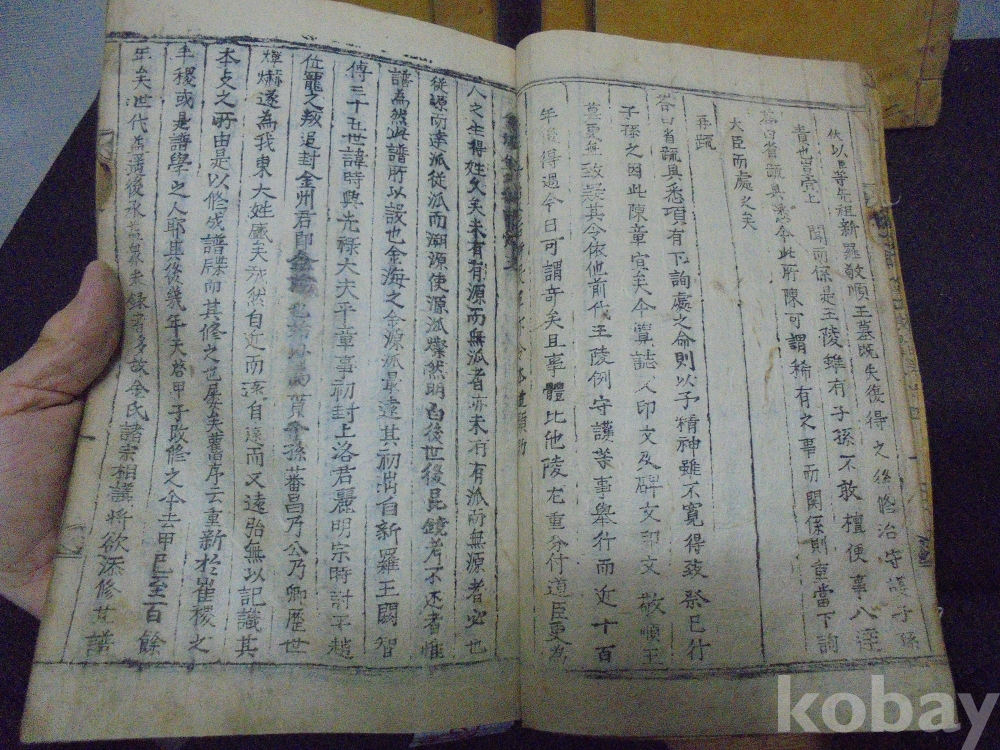 伏以臣等先祖新羅敬順王墓既失復得之後修治守護子孫
聞而係是王陵雖有子孫不敢擅便事八達
答曰省疏具悉今此所陳可謂稀有之事而關係則重當下詢
大臣而處之矣
再疏
答曰省疏具悉項有下詢處之命則以予精神雖不寬得致祭已行
子孫之因此陳章宜矣今算誌人印文及碑文印文敬順王
致然其今依他前代王陵例守護等事舉行而近十百
年後得過今日可謂奇矣且事體比他陵尤重分付道臣更為
人之生得姓久矣未有有源而無派者亦未有有派而無源者必也
從源而達派從派而溯源使源派燦然明白後世後昆鏡考不迷者惟
譜為然此譜所以設也金海之金源派最遠其初出自新羅王閼智
傳三十五世諱時興光祿大夫平章事初封上洛君麗明宗時討平趙
位寵之叛追封金州君即金海也 孫蕃昌乃公乃卿歷世
煇爀遂為我東大姓盛矣哉然自近而遠自遠而又遠殆無以記識其
本支之所由是以修成譜牒而其修之也屢矣舊序云重新於崔稷之
年稷或是譜學之人耶其後幾年天啓甲子改修之今去甲已至百餘
年矣世代 遠後承 衆未錄者多故金氏諸宗相議將欲添修其譜
kobay